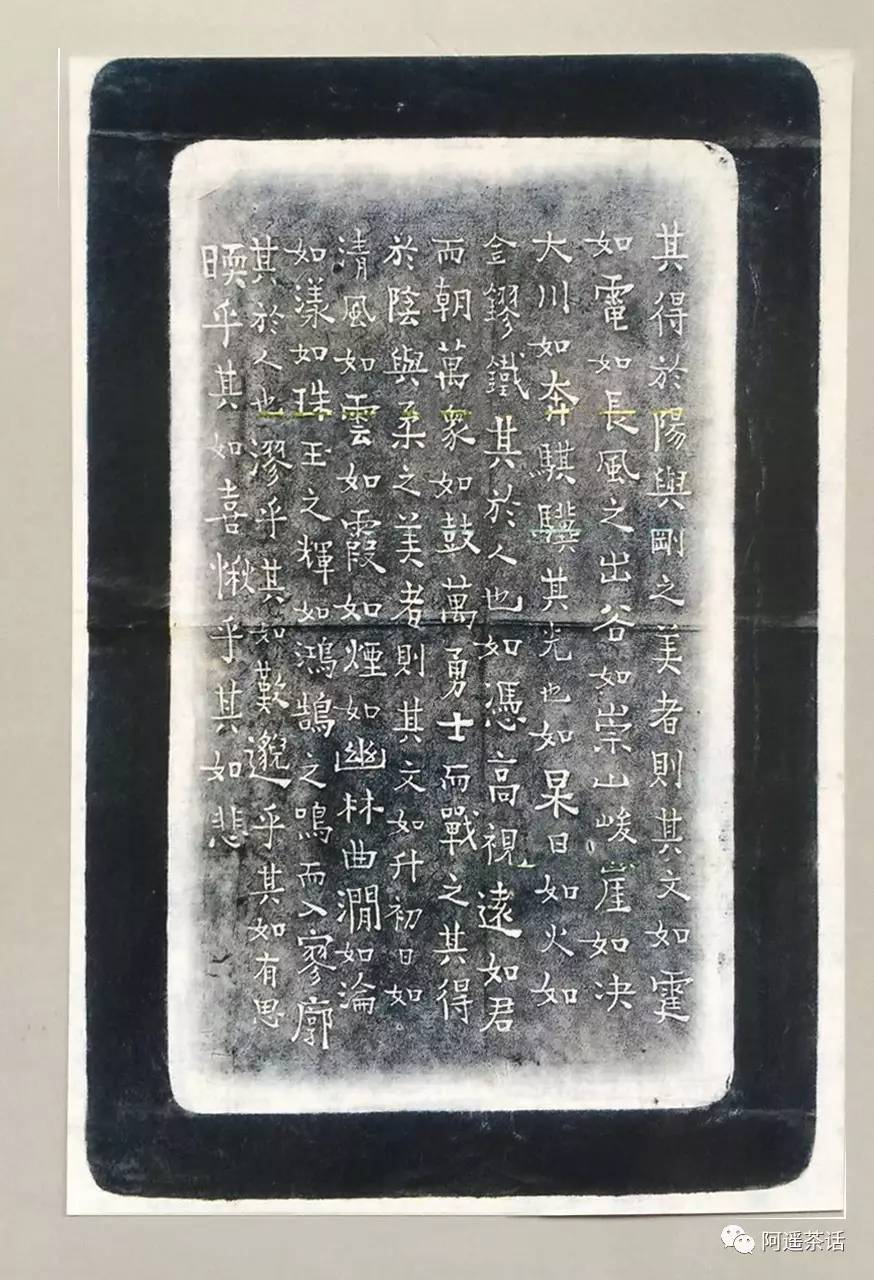 其得於陽與剛之美者則其文如霆
如電如長風之出谷如崇山峻崖如決
大川如奔騏驥其光也如杲日如火如
金鏐鐵其於人也如憑高視遠如君
而朝萬衆如鼓萬勇士而戰之其得
於陰與柔之美者則其文如升初日如
清風如雲如霞如煙如幽林曲澗如淪
如漾如珠玉之輝如鴻鵠之鳴而入寥廓
其於人也漻乎其如歎邈乎其如有思
㬉乎其如喜愀乎其如悲
阿遥茶话